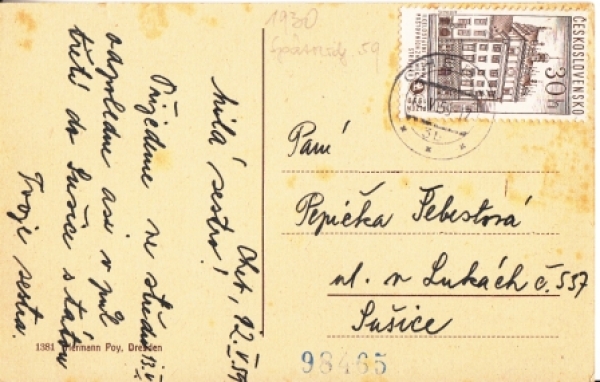 1930
59
ČESKOSLOVENSKO
30h
Cht, 12. V. 59
Milá sestro!
Přijedeme ve středu 13. V.
odpoledne asi v půl
třetí do Sušice s tátou
Tvoje sestra.
Paní
Pepička Šebestová
ul. v Lukách č. 557
Sušice
1381 Hermann Poy, Dresden
98465